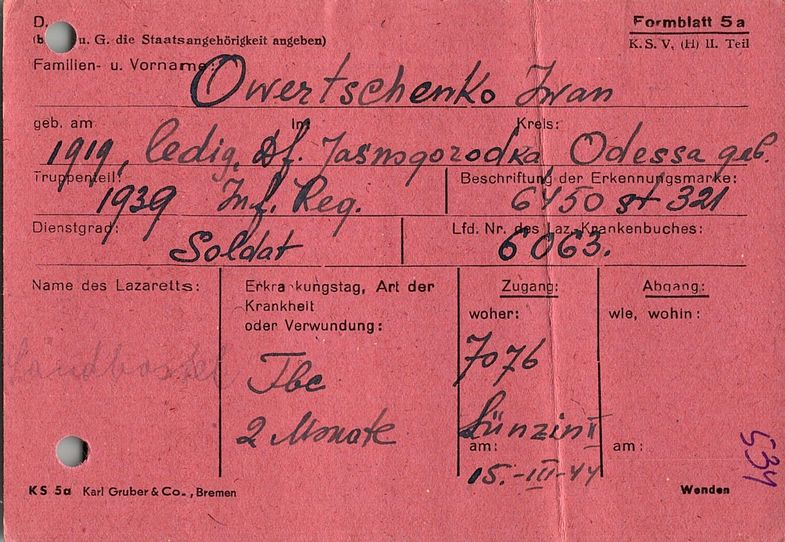 D.
Formblatt 5a
u. G. die Staatsangehörigkeit angeben)
K. S. V. (H) II. Teil
Familien- u. Vorname:
Owertschenko Iwan
geb. am Im Kreis:
1919, ledig, Df. Jasnogorodka Odessa geb.
Truppenteil: Beschriftung der Erkennungsmarke:
1939 Inf. Reg. 6450 st 321
Dienstgrad: Lfd. Nr. des Laz. Krankenbuches:
Soldat 6063.
Name des Lazaretts:
Erkrankungstag, Art der
Krankheit
oder Verwundung:
Zugang:
woher:
Abgang:
wie, wohin:
Sandbostel
Tbc
2 Monate
7076
Lünzin II
am:
15.-III-44
am:
534
KS 5a Karl Gruber & Co., Bremen
Wenden